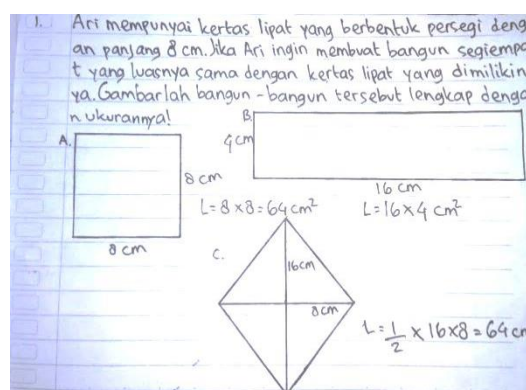 1. Ari mempunyai kertas lipat yang berbentuk persegi deng
an panjang 8 cm. Jika Ari ingin membuat bangun segiempa
t yang luasnya sama dengan kertas lipat yang dimilikin
ya. Gambarlah bangun-bangun tersebut lengkap denga
n ukurannya!
A.
8 cm
8 cm
L = 8 × 8 = 64 cm²
B.
4 cm
16 cm
L = 16 × 4 cm²
C.
16 cm
8 cm
L = 1/2 × 16 × 8 = 64 cm